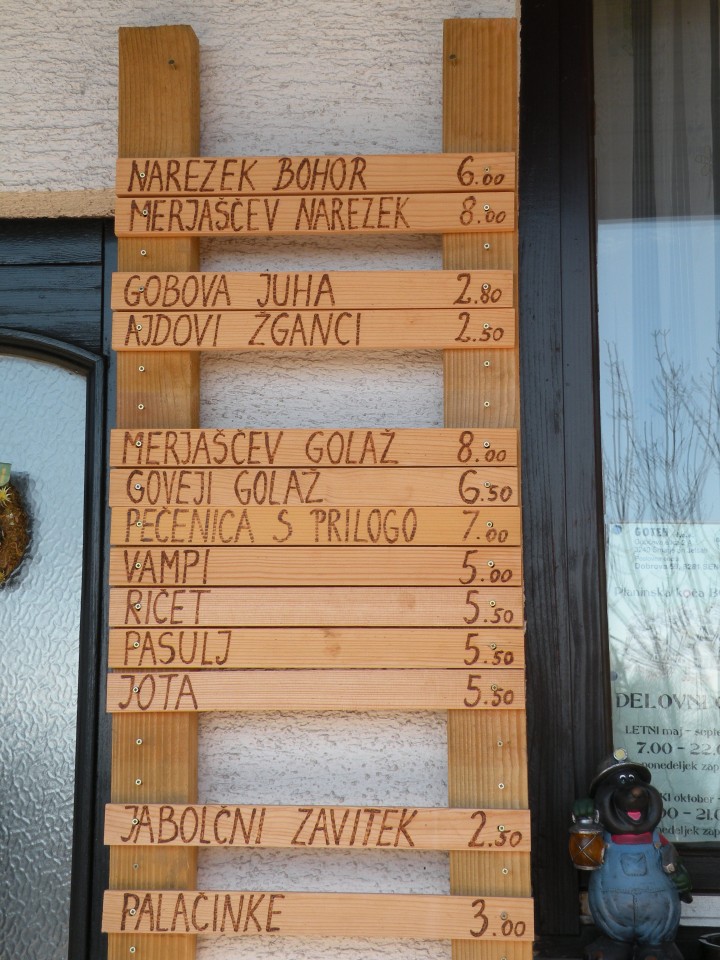 NAREZEK BOHOR 6.00
MERJAŠČEV NAREZEK 8.00
GOBOVA JUHA 2.80
AJDOVI ŽGANCI 2.50
MERJAŠČEV GOLAŽ 8.00
GOVEJI GOLAŽ 6.50
PEČENICA S PRILOGO 7.00
VAMPI 5.00
RIČET 5.50
PASULJ 5.50
JOTA 5.50
JABOLČNI ZAVITEK 2.50
PALAČINKE 3.00
Planinska koča
DELOVNI
LETNI maj - sept
7.00 - 22.0
ponedeljek zap
oktober